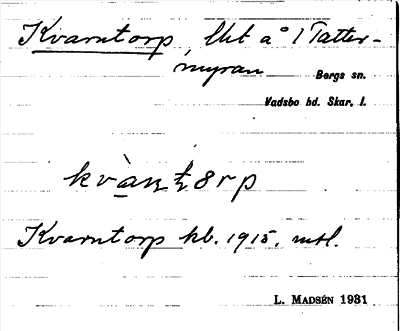 Kvarntorp, lht å 1 Tatter-
myran Bergs sn.
Vadsbo hd. Skar. l.
kvàṉṯ8rp
Kvarntorp kb. 1915, mtl.
L. MADSÉN 1931